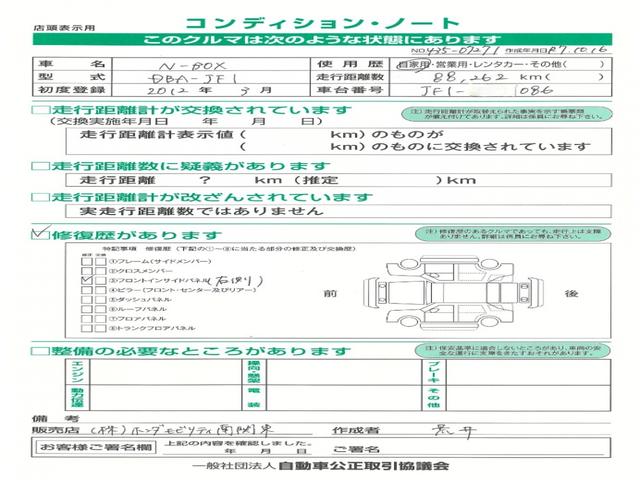 店頭表示用
コンディション・ノート
このクルマは次のような状態にあります
NO 435-07271 作成年月日 R7.10.16
車名 N-BOX 使用歴 自家用・営業用・レンタカー・その他( )
型式 DBA-JF1 走行距離数 88,262 km( )
初度登録 2012年 3月 車台番号 JF1- 1086
□走行距離計が交換されています
(交換実施年月日 年 月 日)
注)走行距離計が取替えられた事実を示す書類が備え付けてあります。詳細は係員にお尋ね下さい。
走行距離計表示値( km)のものが
( km)のものに交換されています
□走行距離数に疑義があります
走行距離 ? km(推定 )km
□走行距離計が改ざんされています
実走行距離数ではありません
☑修復歴があります
注)修復歴のあるクルマであっても、走行上は支障ありません。詳細は係員にお尋ね下さい。
特記事項 修復歴(下記の①~⑧に当たる部分の修正及び交換歴)
修正 交換
①フレーム(サイドメンバー)
②クロスメンバー
③フロントインサイドパネル(右側)
④ピラー(フロント・センター及びリアー)
⑤ダッシュパネル
⑥ルーフパネル
⑦フロアパネル
⑧トランクフロアパネル
前
後
□整備の必要なところがあります
注)保安基準に適合しないところがあり、車両の安全な運行に支障をきたすおそれがあります。
エンジン
操向懸架
ブレーキ
動力伝達
電装
その他
備考
販売店 (株)ホンダモビリティ南関東 作成者 荒井
お客様ご署名欄 上記の内容を確認しました。
年 月 日 ご署名
一般社団法人 自動車公正取引協議会